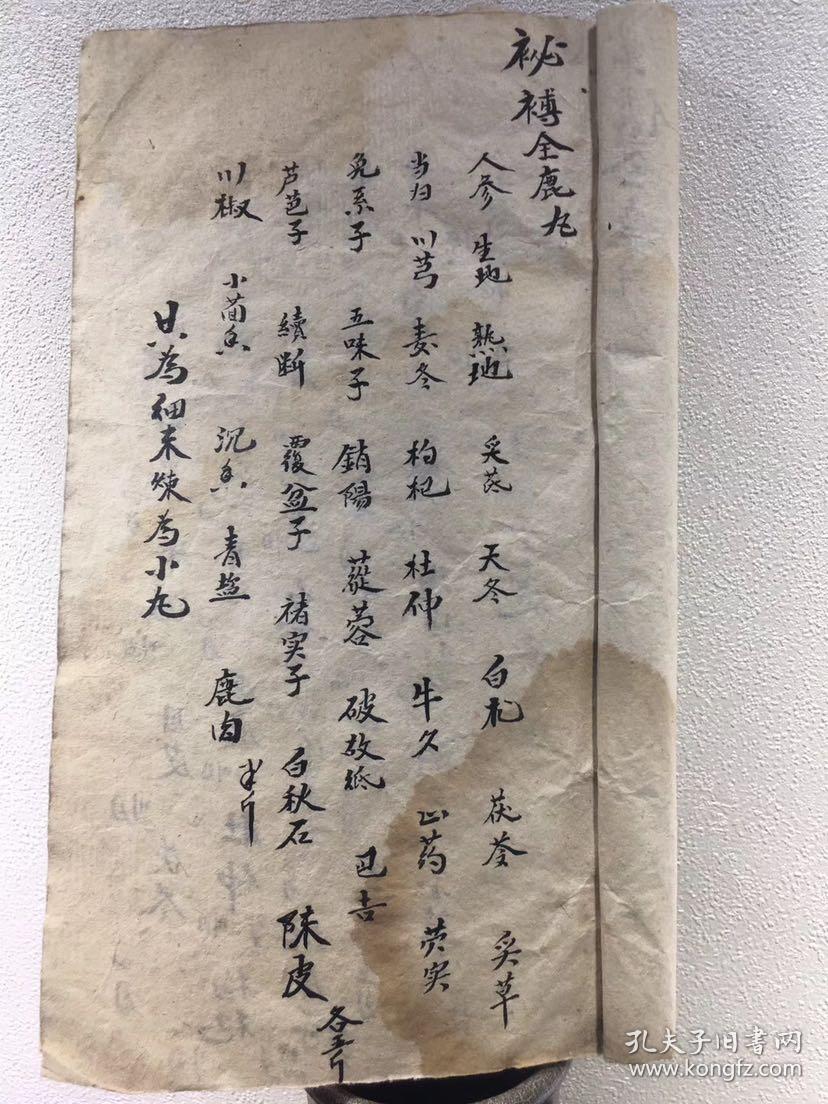 祕禣全鹿丸
人参 生地 熟地 炙芪 天冬 白术 茯苓 炙草
当归 川芎 麦冬 枸杞 杜仲 牛夕 山药 芡实
兔系子 五味子 銷陽 蓯蓉 破故纸 巴吉
芦芭子 續断 覆盆子 褚实子 白秋石 陳皮 各五斤
川椒 小茴香 沉香 青盐 鹿肉 半斤
共為细末煉為小丸
孔夫子旧书网
www.kongfz.com